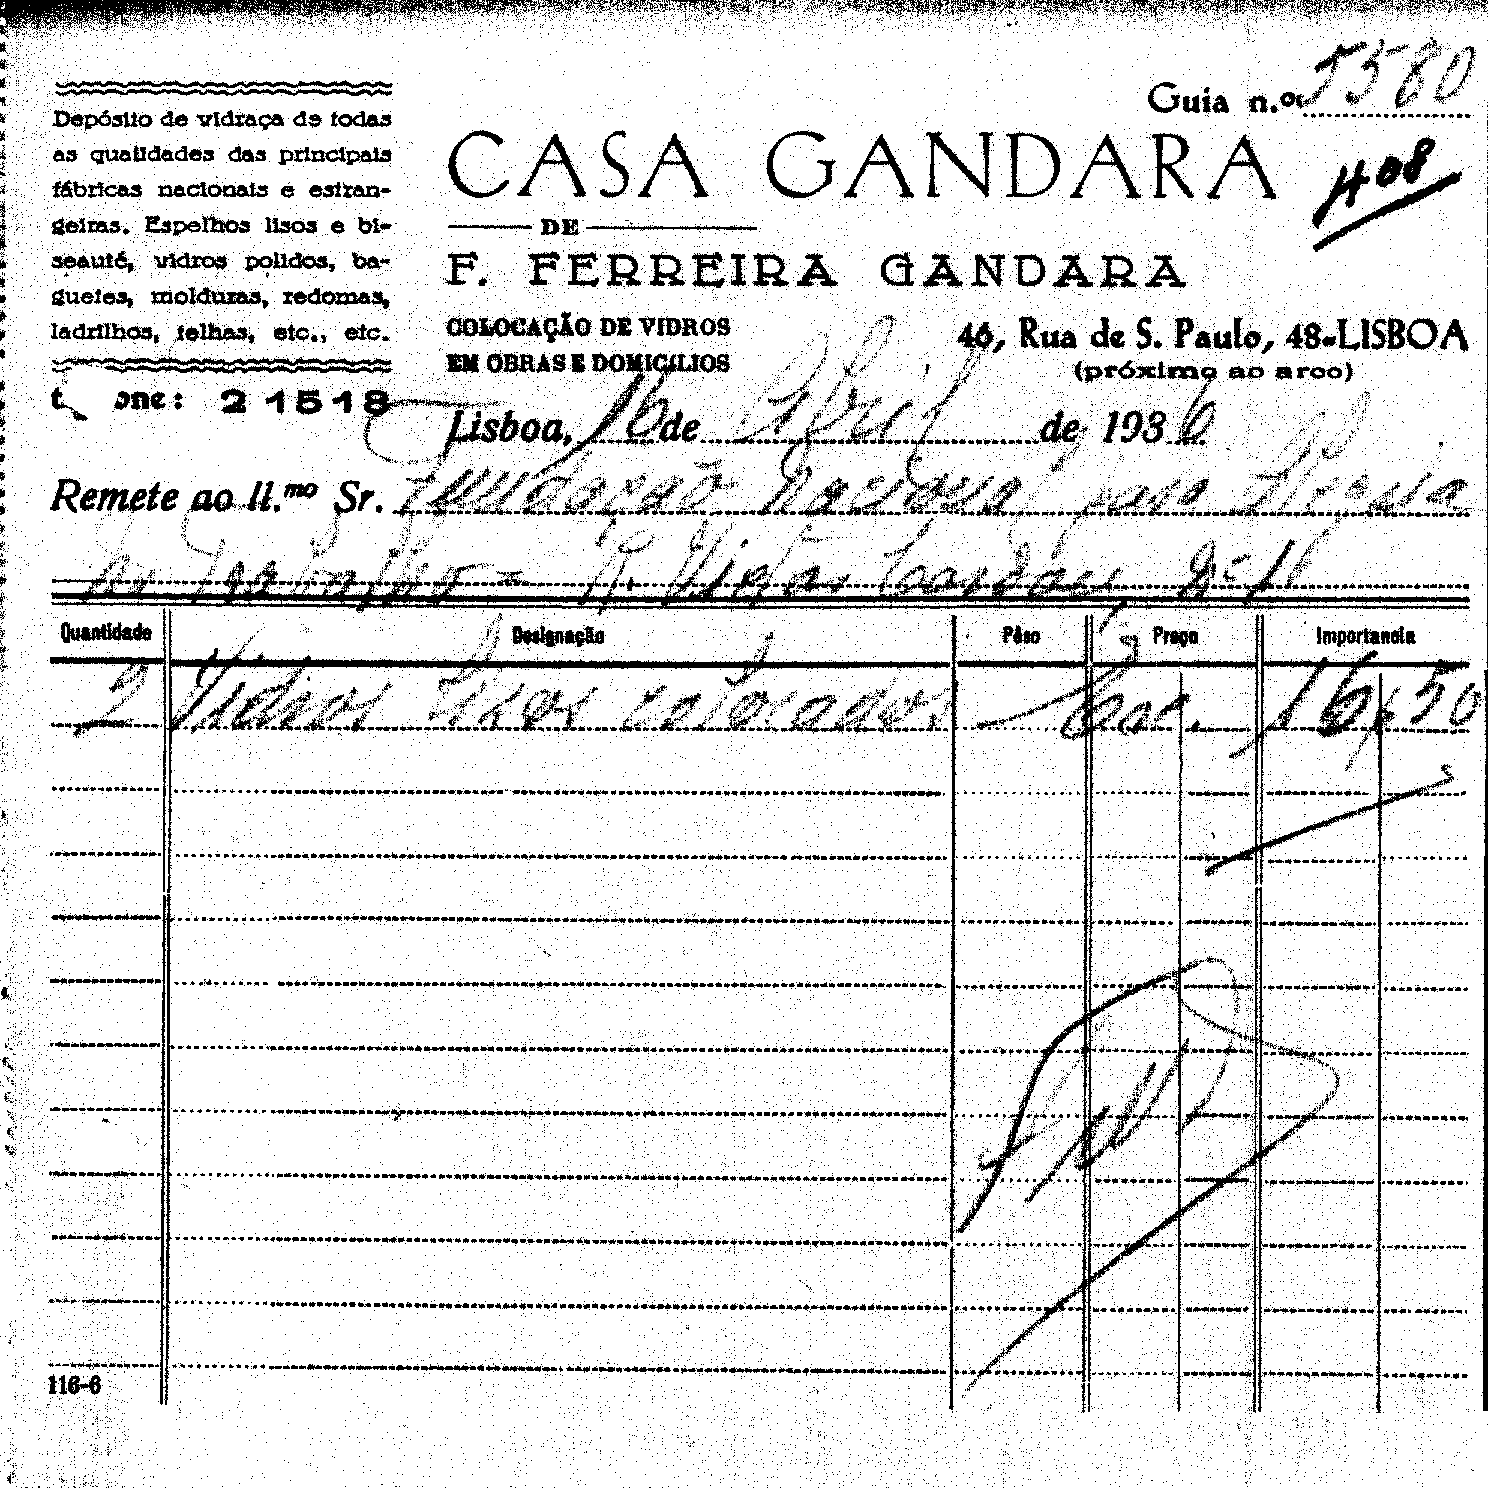 Guia n.º 5580
Depósito de vidraça de todas
as qualidades das principais
fábricas nacionais e estran-
geiras. Espelhos lisos e bi-
seauté, vidros polidos, ba-
guetes, molduras, redomas,
ladrilhos, telhas, etc., etc.
one: 21518
CASA GANDARA
408
DE
F. FERREIRA GANDARA
COLOCAÇÃO DE VIDROS
EM OBRAS E DOMICILIOS
46, Rua de S. Paulo, 48-LISBOA
(próximo ao arco)
Lisboa, 16 de Abril de 1936
Remete ao Il.mo Sr. Fundação Nacional para Alegria
no Trabalho = R. Victor Cordon, Nº 1
Quantidade Designação Pêso Preço Importancia
2 Vidros lisos colocados Esc. 16$50
116-6